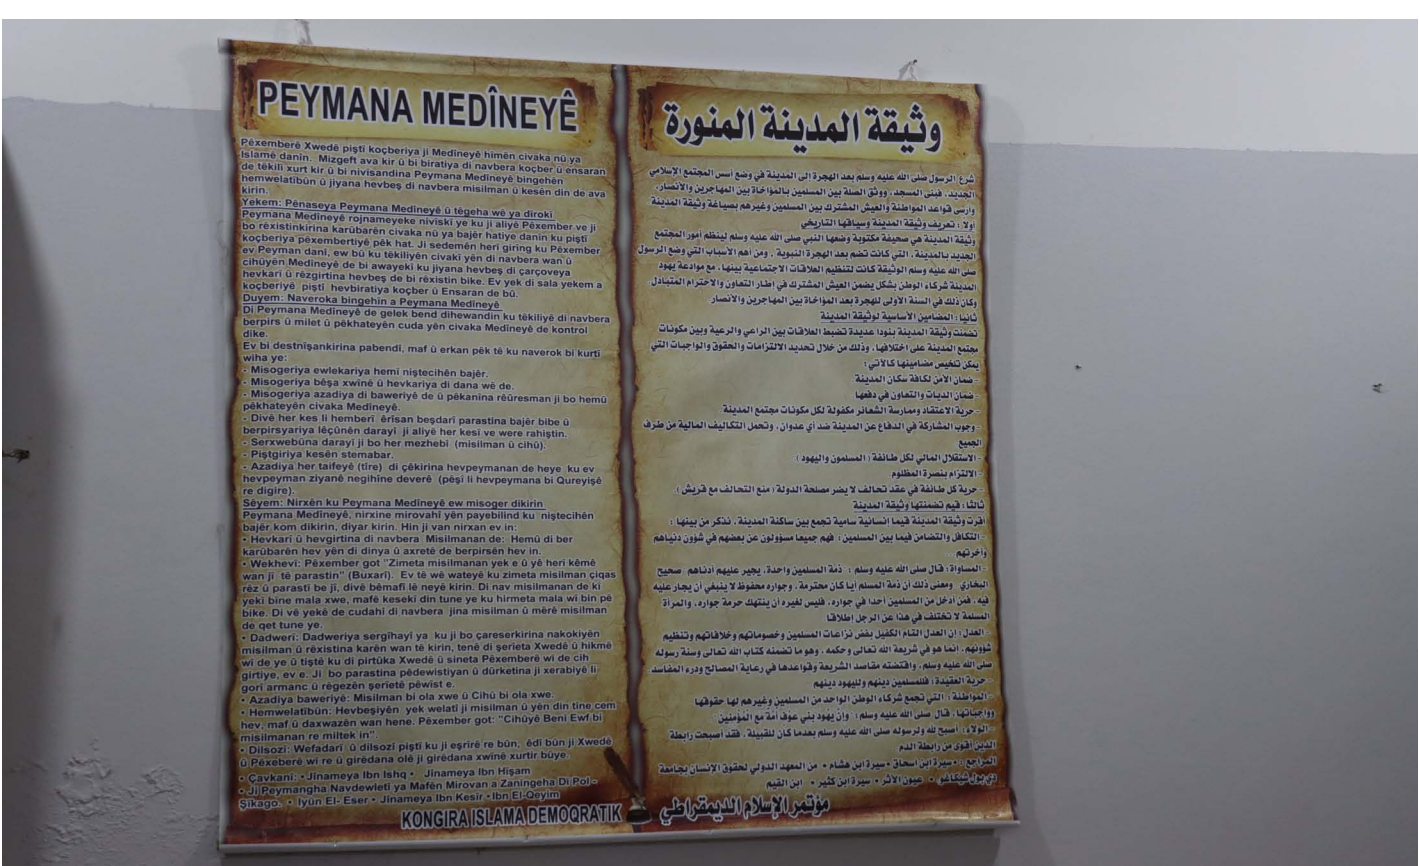 PEYMANA MEDÎNEYÊ
Pêxemberê Xwedê piştî koçberiya ji Medîneyê himên civaka nû ya
Islamê danîn. Mizgeft ava kir û bi biratiya di navbera koçber û ensaran
de têkilî xurt kir û bi nivîsandina Peymana Medîneyê bingehên
hemwelatîbûn û jiyana hevbeş di navbera misilman û kesên din de ava
kirin.
Yekem: Pênaseya Peymana Medîneyê û têgeha wê ya dîrokî
Peymana Medîneyê rojnameyeke nivîskî ye ku ji aliyê Pêxember ve ji
bo rêxistinkirina karûbarên civaka nû ya bajêr hatiye danîn ku piştî
koçberiya pêxembertiyê pêk hat. Ji sedemên herî giring ku Pêxember
ev Peyman danî, ew bû ku têkiliyên civakî yên di navbera wan û
cihûyên Medîneyê de bi awayekî ku jiyana hevbeş di çarçoveya
hevkarî û rêzgirtina hevbeş de bi rêxistin bike. Ev yek di sala yekem a
koçberiyê piştî hevbiratiya koçber û Ensaran de bû.
Duyem: Naveroka bingehîn a Peymana Medîneyê
Di Peymana Medîneyê de gelek bend dihewandin ku têkiliyê di navbera
berpirs û milet û pêkhateyên cuda yên civaka Medîneyê de kontrol
dike.
Ev bi destnîşankirina pabendî, maf û erkan pêk tê ku naverok bi kurtî
wiha ye:
- Misogeriya ewlekariya hemî niştecihên bajêr.
- Misogeriya bêşa xwînê û hevkariya di dana wê de.
- Misogeriya azadiya di baweriyê de û pêkanîna rêûresman ji bo hemû
pêkhateyên civaka Medîneyê.
- Divê her kes li hemberî êrîşan beşdarî parastina bajêr bibe û
berpirsyariya lêçûnên darayî ji aliyê her kesî ve were rahiştin.
- Serxwebûna darayî ji bo her mezhebî (misilman û cihû).
- Piştgiriya kesên stemabar.
- Azadiya her taîfeyê (tîre) di çêkirina hevpeymanan de heye ku ev
hevpeyman ziyanê negihîne deverê (pêşî li hevpeymana bi Qureyişê
re digire).
Sêyem: Nirxên ku Peymana Medîneyê ew misoger dikirin
Peymana Medîneyê, nirxine mirovahî yên payebilind ku niştecihên
bajêr kom dikirin, diyar kirin. Hin ji van nirxan ev in:
• Hevkarî û hevgirtina di navbera Misilmanan de: Hemû di ber
karûbarên hev yên di dinya û axretê de berpirsên hev in.
• Wekhevî: Pêxember got "Zimeta misilmanan yek e û yê herî kêmê
wan jî tê parastin" (Buxarî). Ev tê wê wateyê ku zimeta misilman çiqas
rêz û parastî be jî, divê bêmafî lê neyê kirin. Di nav misilmanan de kî
yekî bine mala xwe, mafê kesekî din tune ye ku hirmeta mala wî bin pê
bike. Di vê yekê de cudahî di navbera jina misilman û mêrê misilman
de qet tune ye.
• Dadwerî: Dadweriya sergîhayî ya ku ji bo çareserkirina nakokiyên
misilman û rêxistina karên wan tê kirin, tenê di şerîeta Xwedê û hikmê
wî de ye û tiştê ku di pirtûka Xwedê û sineta Pêxemberê wî de cih
girtiye, ev e. Ji bo parastina pêdewistiyan û dûrketina ji xerabiyê li
gorî armanc û rêgezên şerîetê pêwist e.
• Azadiya baweriyê: Misilman bi ola xwe û Cihû bi ola xwe.
• Hemwelatîbûn: Hevbeşiyên yek welatî ji misilman û yên din tîne cem
hev, maf û daxwazên wan hene. Pêxember got: "Cihûyê Benî Ewf bi
misilmanan re miltek in".
• Dilsozî: Wefadarî û dilsozî piştî ku ji eşîrê re bûn, êdî bûn ji Xwedê
û Pêxeberê wî re û girêdana olê ji girêdana xwînê xurtir bûye.
• Çavkanî: • Jînameya Ibn Ishq • Jînameya Ibn Hişam
• Ji Peymangha Navdewletî ya Mafên Mirovan a Zanîngeha Di Pol -
Şîkago. • Iyûn El- Eser • Jînameya Ibn Kesîr • Ibn El-Qeyim
KONGIRA ISLAMA DEMOQRATIK
وثيقة المدينة المنورة
شرع الرسول صلى الله عليه وسلم بعد الهجرة إلى المدينة في وضع أسس المجتمع الإسلامي
الجديد، فبنى المسجد، ووثق الصلة بين المسلمين بالمؤاخاة بين المهاجرين والأنصار،
وأرسى قواعد المواطنة والعيش المشترك بين المسلمين وغيرهم بصياغة وثيقة المدينة
أولا : تعريف وثيقة المدينة وسياقها التاريخي
وثيقة المدينة هي صحيفة مكتوبة وضعها النبي صلى الله عليه وسلم لينظم أمور المجتمع
الجديد بالمدينة، التي كانت تضم بعد الهجرة النبوية . ومن أهم الأسباب التي وضع الرسول
صلى الله عليه وسلم الوثيقة كانت لتنظيم العلاقات الاجتماعية بينها، مع موادعة يهود
المدينة شركاء الوطن بشكل يضمن العيش المشترك في إطار التعاون والاحترام المتبادل
وكان ذلك في السنة الأولى للهجرة بعد المؤاخاة بين المهاجرين والأنصار
ثانيا : المضامين الأساسية لوثيقة المدينة
تضمنت وثيقة المدينة بنودا عديدة تضبط العلاقات بين الراعي والرعية وبين مكونات
مجتمع المدينة على اختلافها، وذلك من خلال تحديد الالتزامات والحقوق والواجبات التي
يمكن تلخيص مضامينها كالآتي :
- ضمان الأمن لكافة سكان المدينة
- ضمان الديات والتعاون في دفعها
- حرية الاعتقاد وممارسة الشعائر مكفولة لكل مكونات مجتمع المدينة
- وجوب المشاركة في الدفاع عن المدينة ضد أي عدوان، وتحمل التكاليف المالية من طرف
الجميع
- الاستقلال المالي لكل طائفة ( المسلمون واليهود )
- الالتزام بنصرة المظلوم
- حرية كل طائفة في عقد تحالف لا يضر مصلحة الدولة ( منع التحالف مع قريش ).
ثالثا : قيم تضمنتها وثيقة المدينة
أقرت وثيقة المدينة قيما انسانية سامية تجمع بين ساكنة المدينة، نذكر من بينها :
- التكافل والتضامن فيما بين المسلمين : فهم جميعا مسؤولون عن بعضهم في شؤون دنياهم
وآخرتهم ...
- المساواة : قال صلى الله عليه وسلم : ذمة المسلمين واحدة، يجير عليهم أدناهم صحيح
البخاري ومعنى ذلك أن ذمة المسلم أيا كان محترمة، وجواره محفوظ لا ينبغي أن يجار عليه
فيه، فمن أدخل من المسلمين أحدا في جواره، فليس لغيره أن ينتهك حرمة جواره، والمرأة
المسلمة لا تختلف في هذا عن الرجل إطلاقا
- العدل : إن العدل التام الكفيل بفض نزاعات المسلمين وخصوماتهم وخلافاتهم وتنظيم
شؤونهم، انما هو في شريعة الله تعالى وحكمه، وهو ما تضمنه كتاب الله تعالى وسنة رسوله
صلى الله عليه وسلم، واقتضته مقاصد الشريعة وقواعدها في رعاية المصالح ودرء المفاسد
- حرية العقيدة : فللمسلمين دينهم ولليهود دينهم
- المواطنة : التي تجمع شركاء الوطن الواحد من المسلمين وغيرهم لها حقوقها
وواجباتها، قال صلى الله عليه وسلم : وإن يهود بني عوف أمة مع المؤمنين
- الولاء : أصبح لله ولرسوله صلى الله عليه وسلم بعدما كان للقبيلة، فقد أصبحت رابطة
الدين أقوى من رابطة الدم
المراجع : • سيرة ابن اسحاق • سيرة ابن هشام • من المعهد الدولي لحقوق الإنسان بجامعة
دي بول شيكاغو • عيون الأثر • سيرة ابن كثير • ابن القيم
مؤتمر الإسلام الديمقراطي